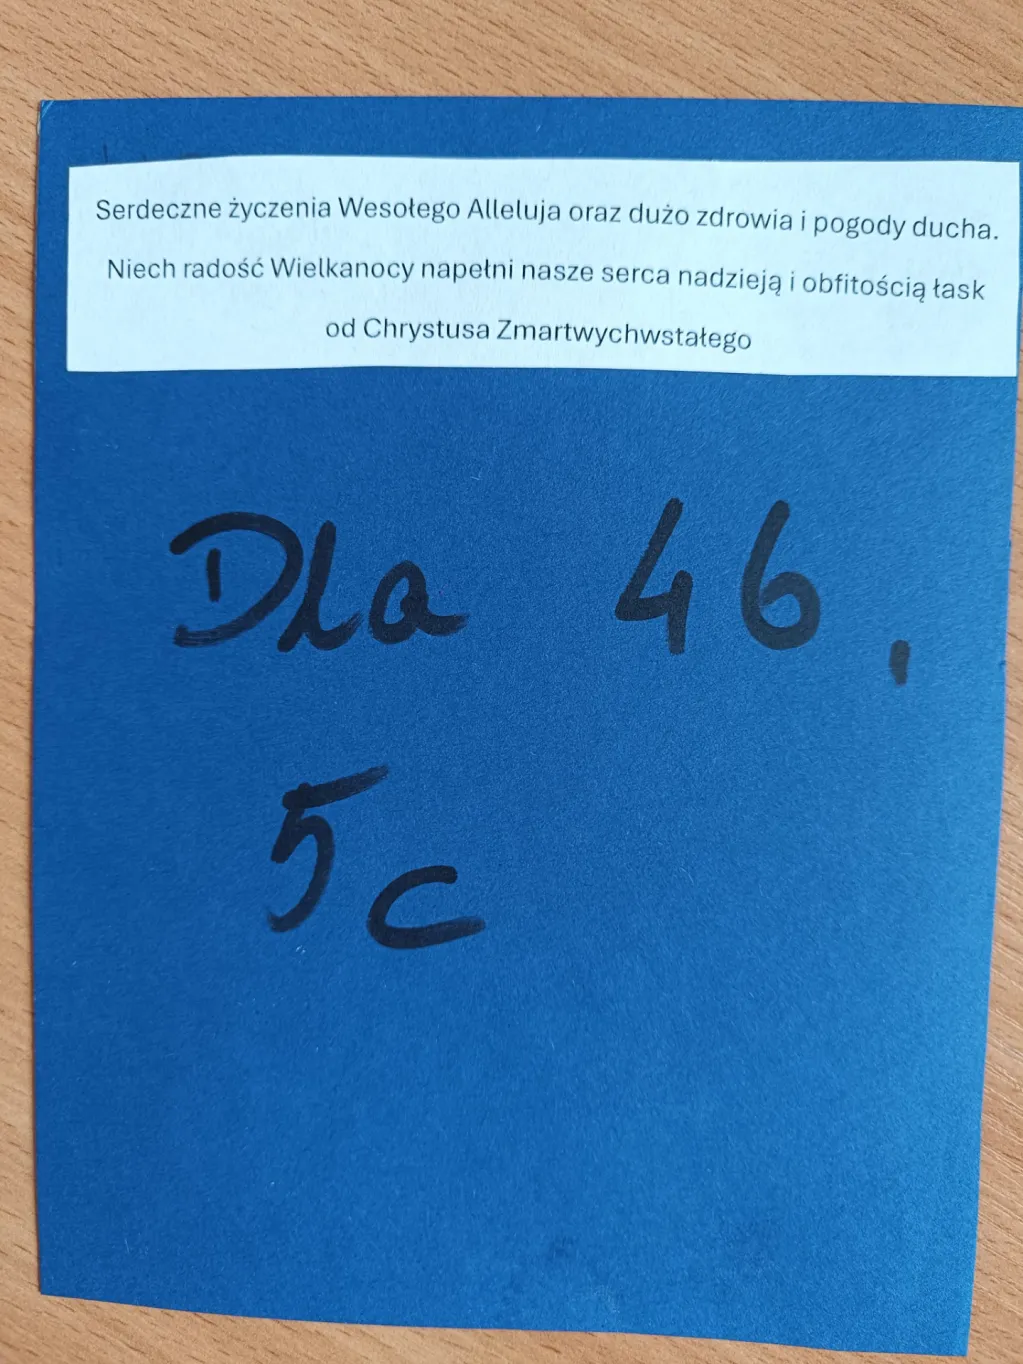 Serdeczne życzenia Wesołego Alleluja oraz dużo zdrowia i pogody ducha.
Niech radość Wielkanocy napełni nasze serca nadzieją i obfitością łask
od Chrystusa Zmartwychwstałego
Dla 46.
5c